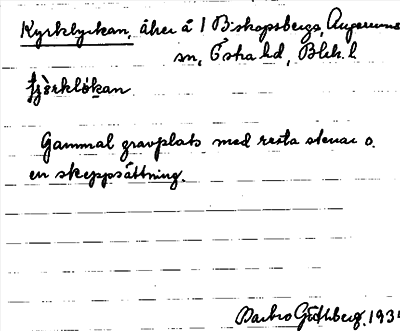 Kyrklyckan, åker å 1 Biskopsberga, Augerums
sn, Östra hd, Blek. l
Gammal gravplats med resta stenar o.
en skeppsättning.
Barbro Guthberg. 193